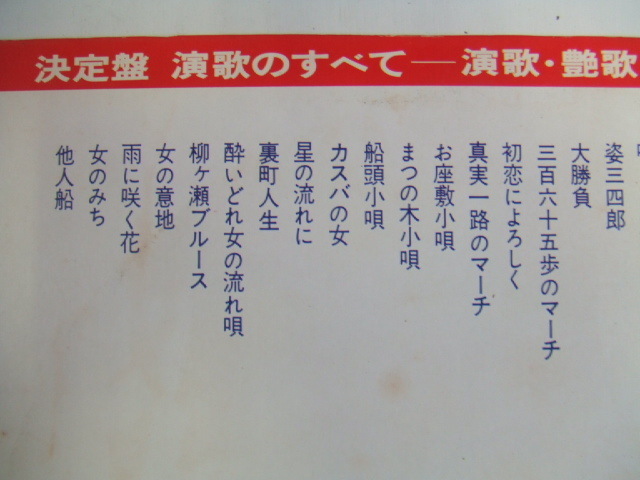 決定盤 演歌のすべて──演歌・艶歌
姿三四郎
大勝負
三百六十五歩のマーチ
初恋によろしく
真実一路のマーチ
お座敷小唄
まつの木小唄
船頭小唄
カスバの女
星の流れに
裏町人生
酔いどれ女の流れ唄
柳ヶ瀬ブルース
女の意地
雨に咲く花
女のみち
他人船